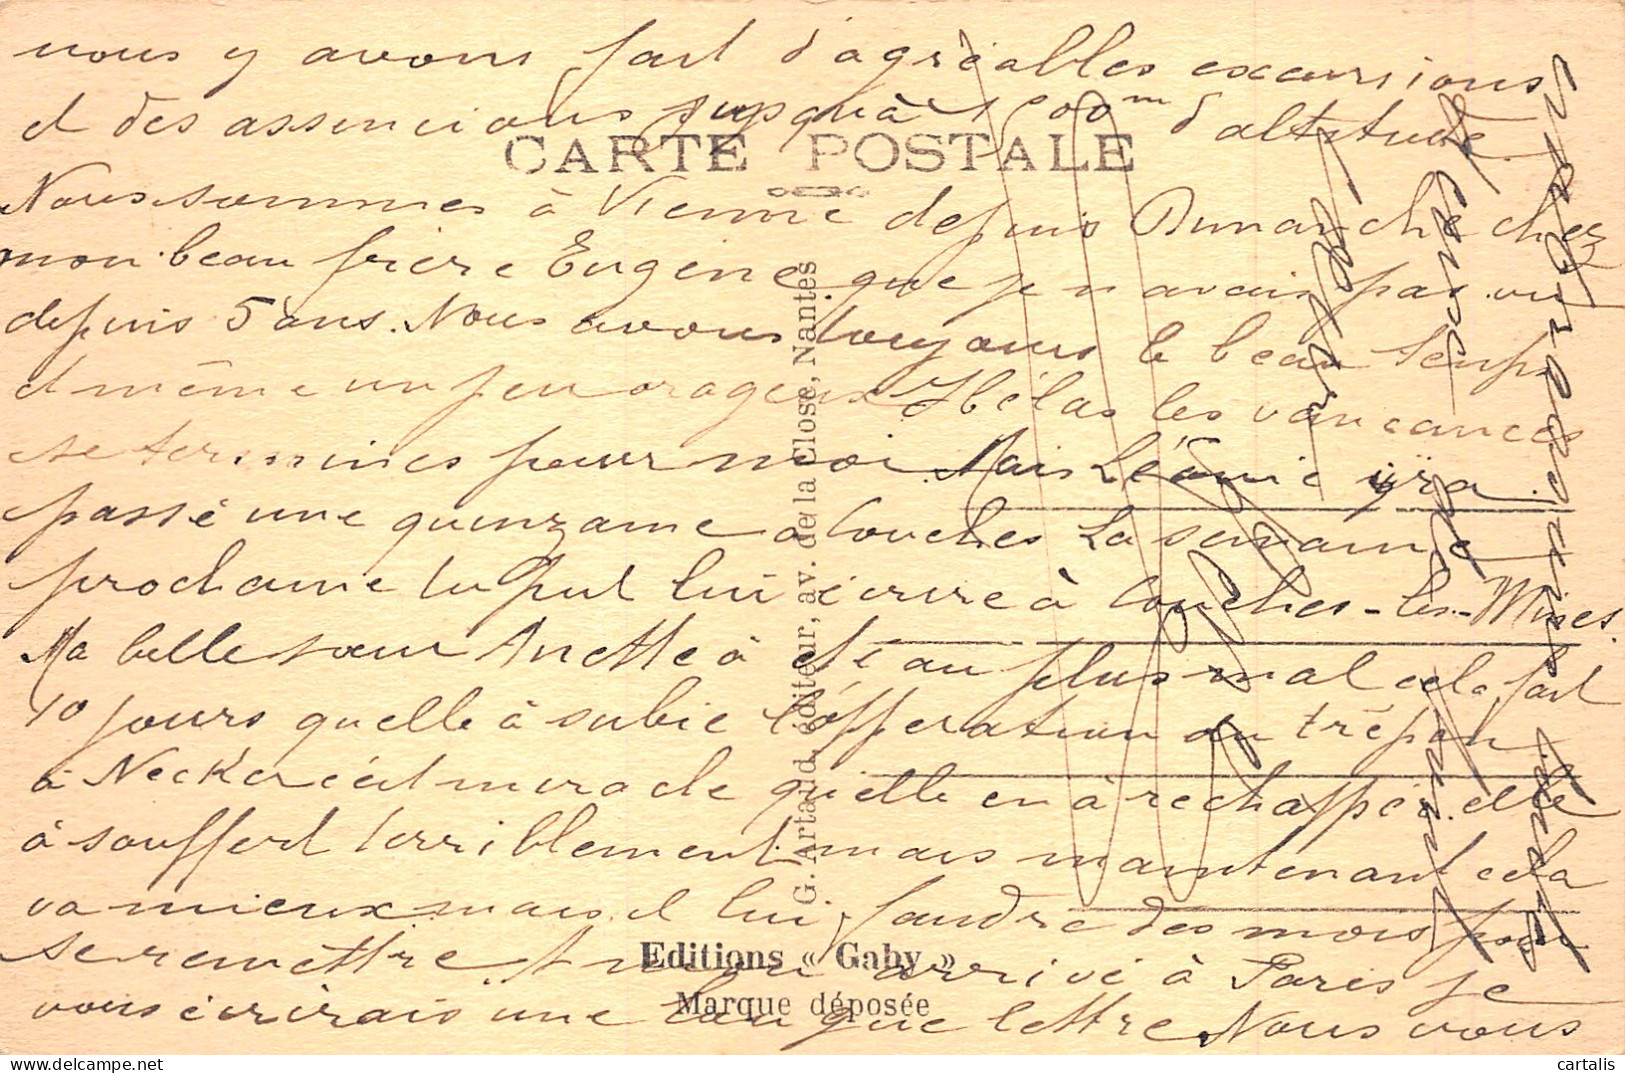 nous y avons fait d'agréables excursions
et des assencions jusqu'à 1500m d'altitude
CARTE POSTALE
Nous sommes à Vienne depuis Dimanche chez
mon beau frère Eugène que je n avais pas vu
depuis 5 ans. Nous avons toujours le beau temps
et même un peu orageux Hélas les vancances
se termines pour moi. Mais Léonie ira
passé une quinzame à Couches La semaine
prochaine tu put lui écrire à Couches-les-Mines.
Ma belle sœur Anette à été au plus mal cela fait
10 jours quelle à subie l'opperation du trépan
à Necker c'est miracle quelle en à rechappée. elle
à souffert terriblement mais maintenant cela
va mieux mais il lui faudra des mois pour
se remettre
arrivé à Paris je
vous écrirais une longue lettre Nous vous
G. Artaud, éditeur, av. de la Close, Nantes
Editions « Gaby »
Marque déposée
cartalis
delcampe.net